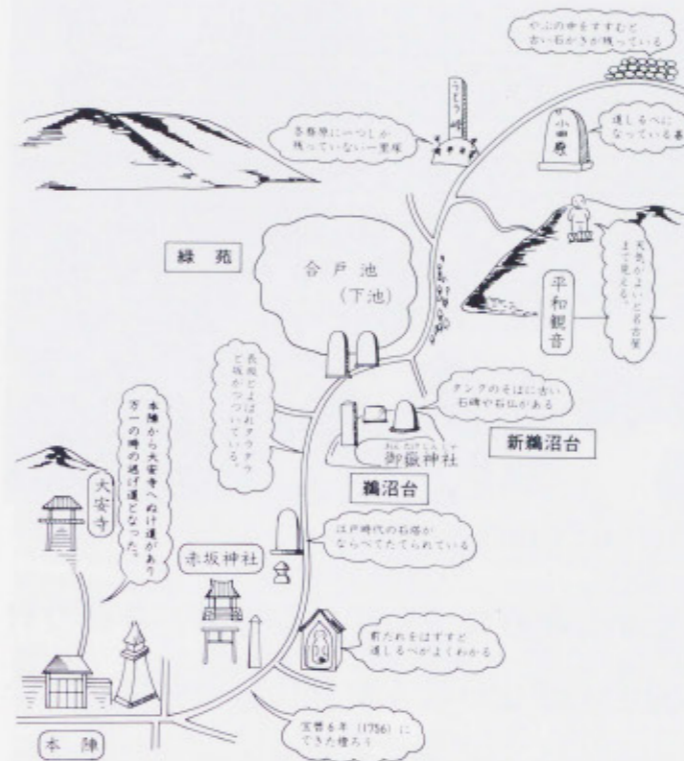 やぶの中をすすむと
古い石がきが残っている
うとう峠
各務原に一つしか
残っていない一里塚
小田殿
道しるべに
なっている墓
天気がよいと名古屋
まで見える。
平和観音
緑苑
合戸池
(下池)
長坂とよばれダラダラ
と坂がつづいている。
タンクのそばに古い
石碑や石仏がある
おんたけじんじゃ
御嶽神社
新鵜沼台
鵜沼台
本陣から大安寺へぬけ道があり
万一の時の逃げ道となった。
大安寺
江戸時代の石塔が
ならべてたてられている
赤坂神社
前だれをはずすと
道しるべがよくわかる
宝暦6年(1756)に
できた燈ろう
本陣